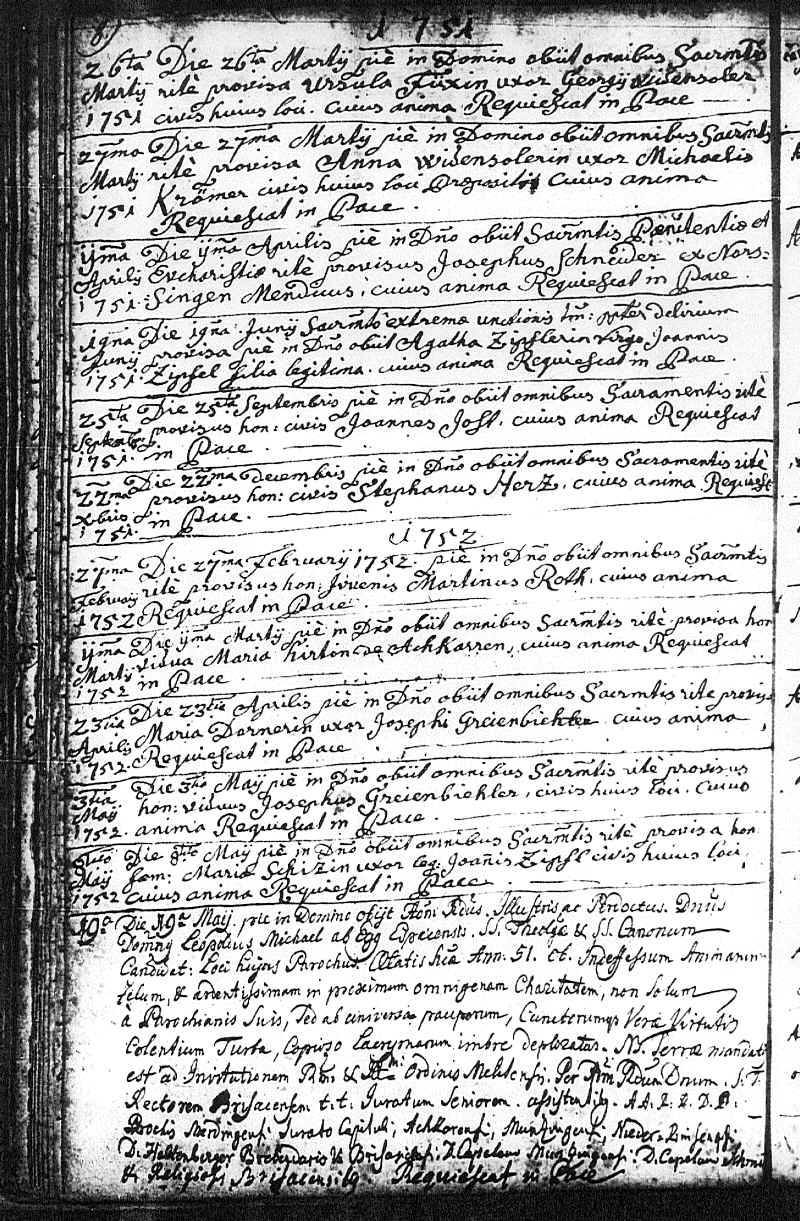 8.)
1751
26ta Die 26ta Martij piè in Domino obijt omnibus Sacrmtis
Martij ritè provisa Ursula Füxin uxor Georgij Widensoler
1751 civis huius loci. cuius anima Requiescat in Pace
27ma Die 27ma Martij piè in Domino obijt omnibus Sacrmtis
Martij ritè provisa Anna Widensolerin uxor Michaelis
1751 Krämer civis huius loci cuius anima
Requiescat in Pace.
ijma Die ijma Aprilis piè in Dño obijt Sacrmtis Pænitentiæ et
Aprilis Eucharistiæ ritè provisus Josephus Schneider ex Nors=
1751 Singen Mendicus, cuius anima Requiescat in Pace.
19na Die 19na Junij Sacrmto extremæ unctionis tm: ppter delirium
Junij provisa piè in Dño obijt Agatha Zipflerin virgo Joannis
1751. Zipfel filia legitima. cuius anima Requiescat in Pace.
25ta Die 25ta Septembris piè in Dño obijt omnibus Sacramentis ritè
Septemb: provisus hon: civis Joannes Jost, cuius anima Requiescat
1751. in Pace.
22ma Die 22ma decembris piè in Dño obijt omnibus Sacramentis ritè
Xbris provisus hon: civis Stephanus Herz, cuius anima Requiest
1751. in Pace.
1752
27ma Die 27ma February 1752. piè in Dño obijt omnibus Sacrmtis
February ritè provisus hon: Juvenis Martinus Roth, cuius anima
1752 Requiescat in Pace.
ijma Die ijma Martij piè in Dño obijt omnibus Sacrmtis ritè provisa hon
Martij vidua Maria Hirtin de Achkarren, cuius anima Requiescat
1752 in Pace.
23tia Die 23tia Aprilis piè in Dño obijt omnibus Sacrmtis rite provisa
Aprilis Maria Dornerin uxor Josephi Greienbiehler cuius anima
1752. Requiescat in Pace
3tia Die 3tia Maij piè in Dño obijt omnibus Sacrmtis ritè provisus
Maij hon: viduus Josephus Greienbiehler, civis huius loci. cuius
1752. anima Requiescat in Pace.
Die Maij piè in Dño obijt omnibus Sacrmtis ritè provisa hon
Maij fœm: Maria Schizin uxor leg: Joañis Zipfl civis huius loci,
1752 cuius anima Requiescat in Pace.
19a Die 19a Maij. pie in Domino obijt Illustris ac Perdoctus. Dnus
Leopoldus Michael ab Egg SS. Theolgæ & SS. Canonum
Candidat: Loci hujus Parochus. Ætatis suæ Ann: 51. ob. Indefessum Animarum
Zelum, & ardentissimam in proximum omnigenam Charitatem, non solum
à Parochianis Suis, sed ab universa pauperum, Cunctorumq; Veræ Virtutis
Colentium Turba, Copioso Lacrymarum imbre deploratus. NB. Terræ mandatus
est ad Invitationem & Ordinis Per Rdum Dnum. S. J.
Rectorem Brisacensem t.t. Juratum Seniorem. assistentibq. AA. R. R. D. D.
Jurato Capituli, Achkarensi,
D. & Brisacensi D. Capelano D. Capelano
& Religiosis Brisacensibq. Requiescat in Pace